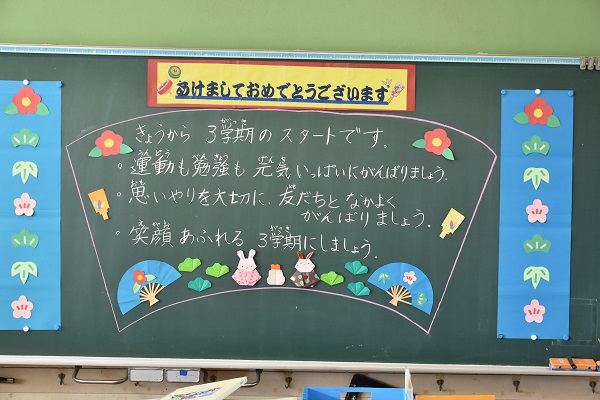 あけましておめでとうございます
きょうから 3学期のスタートです。
・運動も勉強も元気いっぱいにがんばりましょう。
・思いやりを大切に、友だちとなかよく
がんばりましょう。
・笑顔あふれる 3学期にしましょう。